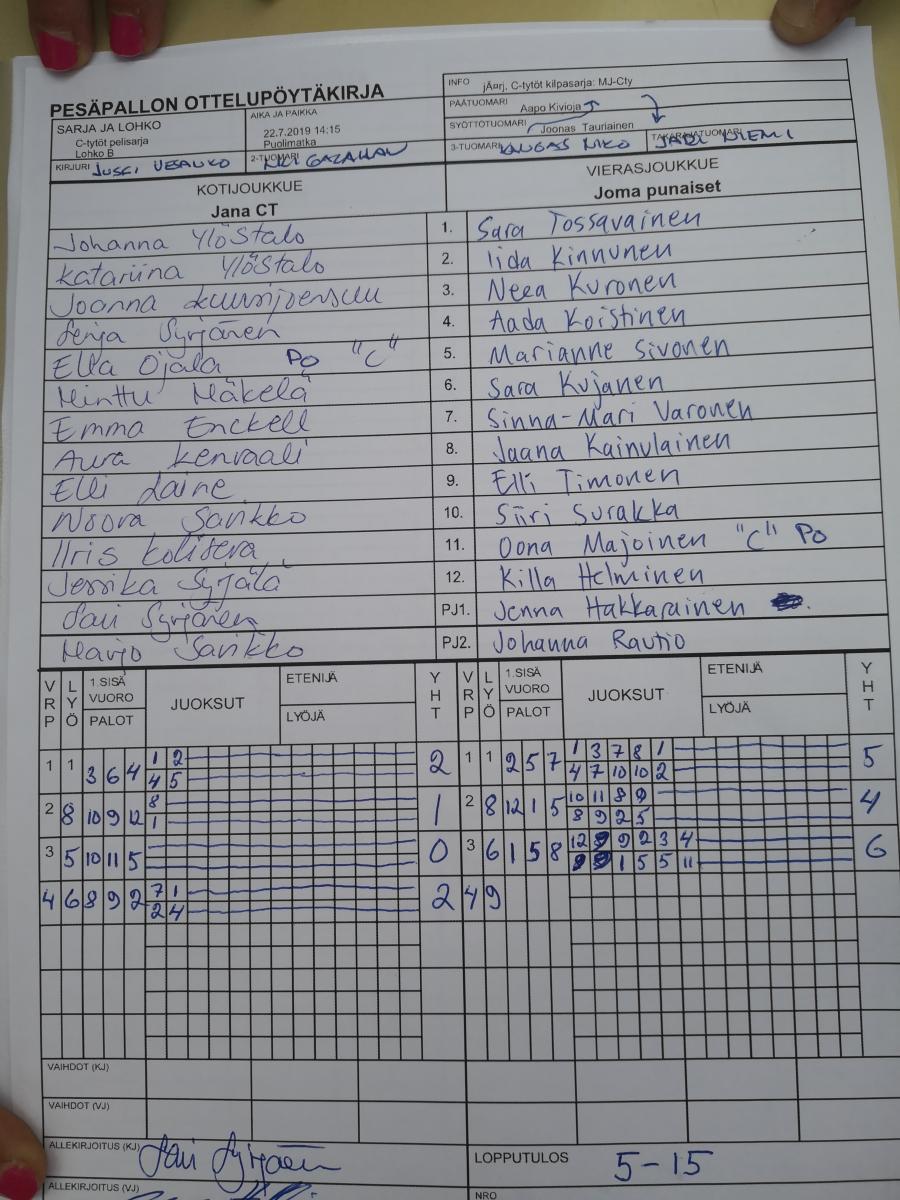 PESÄPALLON OTTELUPÖYTÄKIRJA
INFO jÄ¤rj, C-tytöt kilpasarja: MJ-Cty
PÄÄTUOMARI Aapo Kivioja
SARJA JA LOHKO
C-tytöt pelisarja
Lohko B
AIKA JA PAIKKA
22.7.2019 14:15
Puolimatka
SYÖTTÖTUOMARI Joonas Tauriainen
KIRJURI JUSSI
2-TUOMARI
3-TUOMARI KANGAS NIKO
TAKARAJATUOMARI JARI NIEMI
KOTIJOUKKUE
Jana CT
VIERASJOUKKUE
Joma punaiset
Johanna Ylöstalo 1. Sara Tossavainen
Katariina Ylöstalo 2. Iida Kinnunen
Joanna Kuurijoensuu 3. Neea Kuronen
Senja Syrjänen 4. Aada Koistinen
Ella Ojala Po "C" 5. Marianne Sivonen
Minttu Mäkelä 6. Sara Kujanen
Emma Enckell 7. Sinna-Mari Varonen
Aura Kenraali 8. Jaana Kainulainen
Elli Laine 9. Elli Timonen
Noora Sarikko 10. Siiri Surakka
Iiris 11. Oona Majoinen "C" Po
Jessika Syrjälä 12. Killa Helminen
Sari Syrjänen PJ1. Jenna Hakkarainen
Marjo Sarikko PJ2. Johanna Rautio
VRP LYÖ 1.SISÄ VUORO PALOT JUOKSUT ETENIJÄ LYÖJÄ YHT VRP LYÖ 1.SISÄ VUORO PALOT JUOKSUT ETENIJÄ LYÖJÄ YHT
1 1 3 6 4 1 2 2 1 1 2 5 7 1 3 7 8 1 5
4 5 4 7 10 10 2
2 8 10 9 12 8 1 2 8 12 1 5 10 11 8 9 4
1 8 9 2 5
3 5 10 11 5 0 3 6 1 5 8 12 9 2 3 4 6
1 5 5 11
4 6 8 9 2 7 1 2 4 9
2 4
VAIHDOT (KJ)
VAIHDOT (VJ)
ALLEKIRJOITUS (KJ) Sari Syrjänen
LOPPUTULOS 5-15
ALLEKIRJOITUS (VJ)
NRO